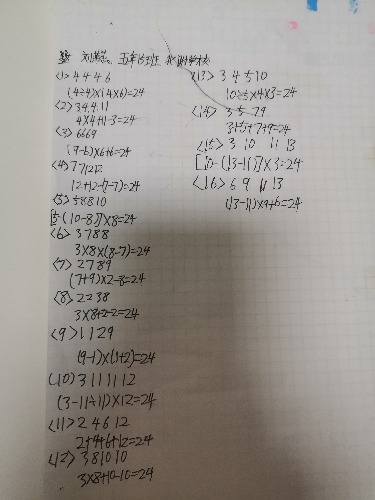 五年
<1> 4 4 4 6
(4÷4)×(4×6)=24
<2> 3 4 4 11
4×4+11-3=24
<3> 6 6 6 9
(9-6)×6+6=24
<4> 7 7 12 12
12+12-(7-7)=24
<5> 5 8 8 10
[5-(10-8)]×8=24
<6> 3 7 8 8
3×8×(8-7)=24
<7> 2 7 8 9
(7+9)×2-8=24
<8> 2 2 3 8
3×8+2-2=24
<9> 1 1 2 9
(9-1)×(1+2)=24
<10> 3 11 11 12
(3-11÷11)×12=24
<11> 2 4 6 12
2+4+6+12=24
<12> 3 8 10 10
3×8+10-10=24
<13> 3 4 5 10
10÷5×4×3=24
<14> 3 5 7 9
3+5+7+9=24
<15> 3 10 11 13
[10-(13-11)]×3=24
<16> 6 9 11 13
(13-11)×9+6=24